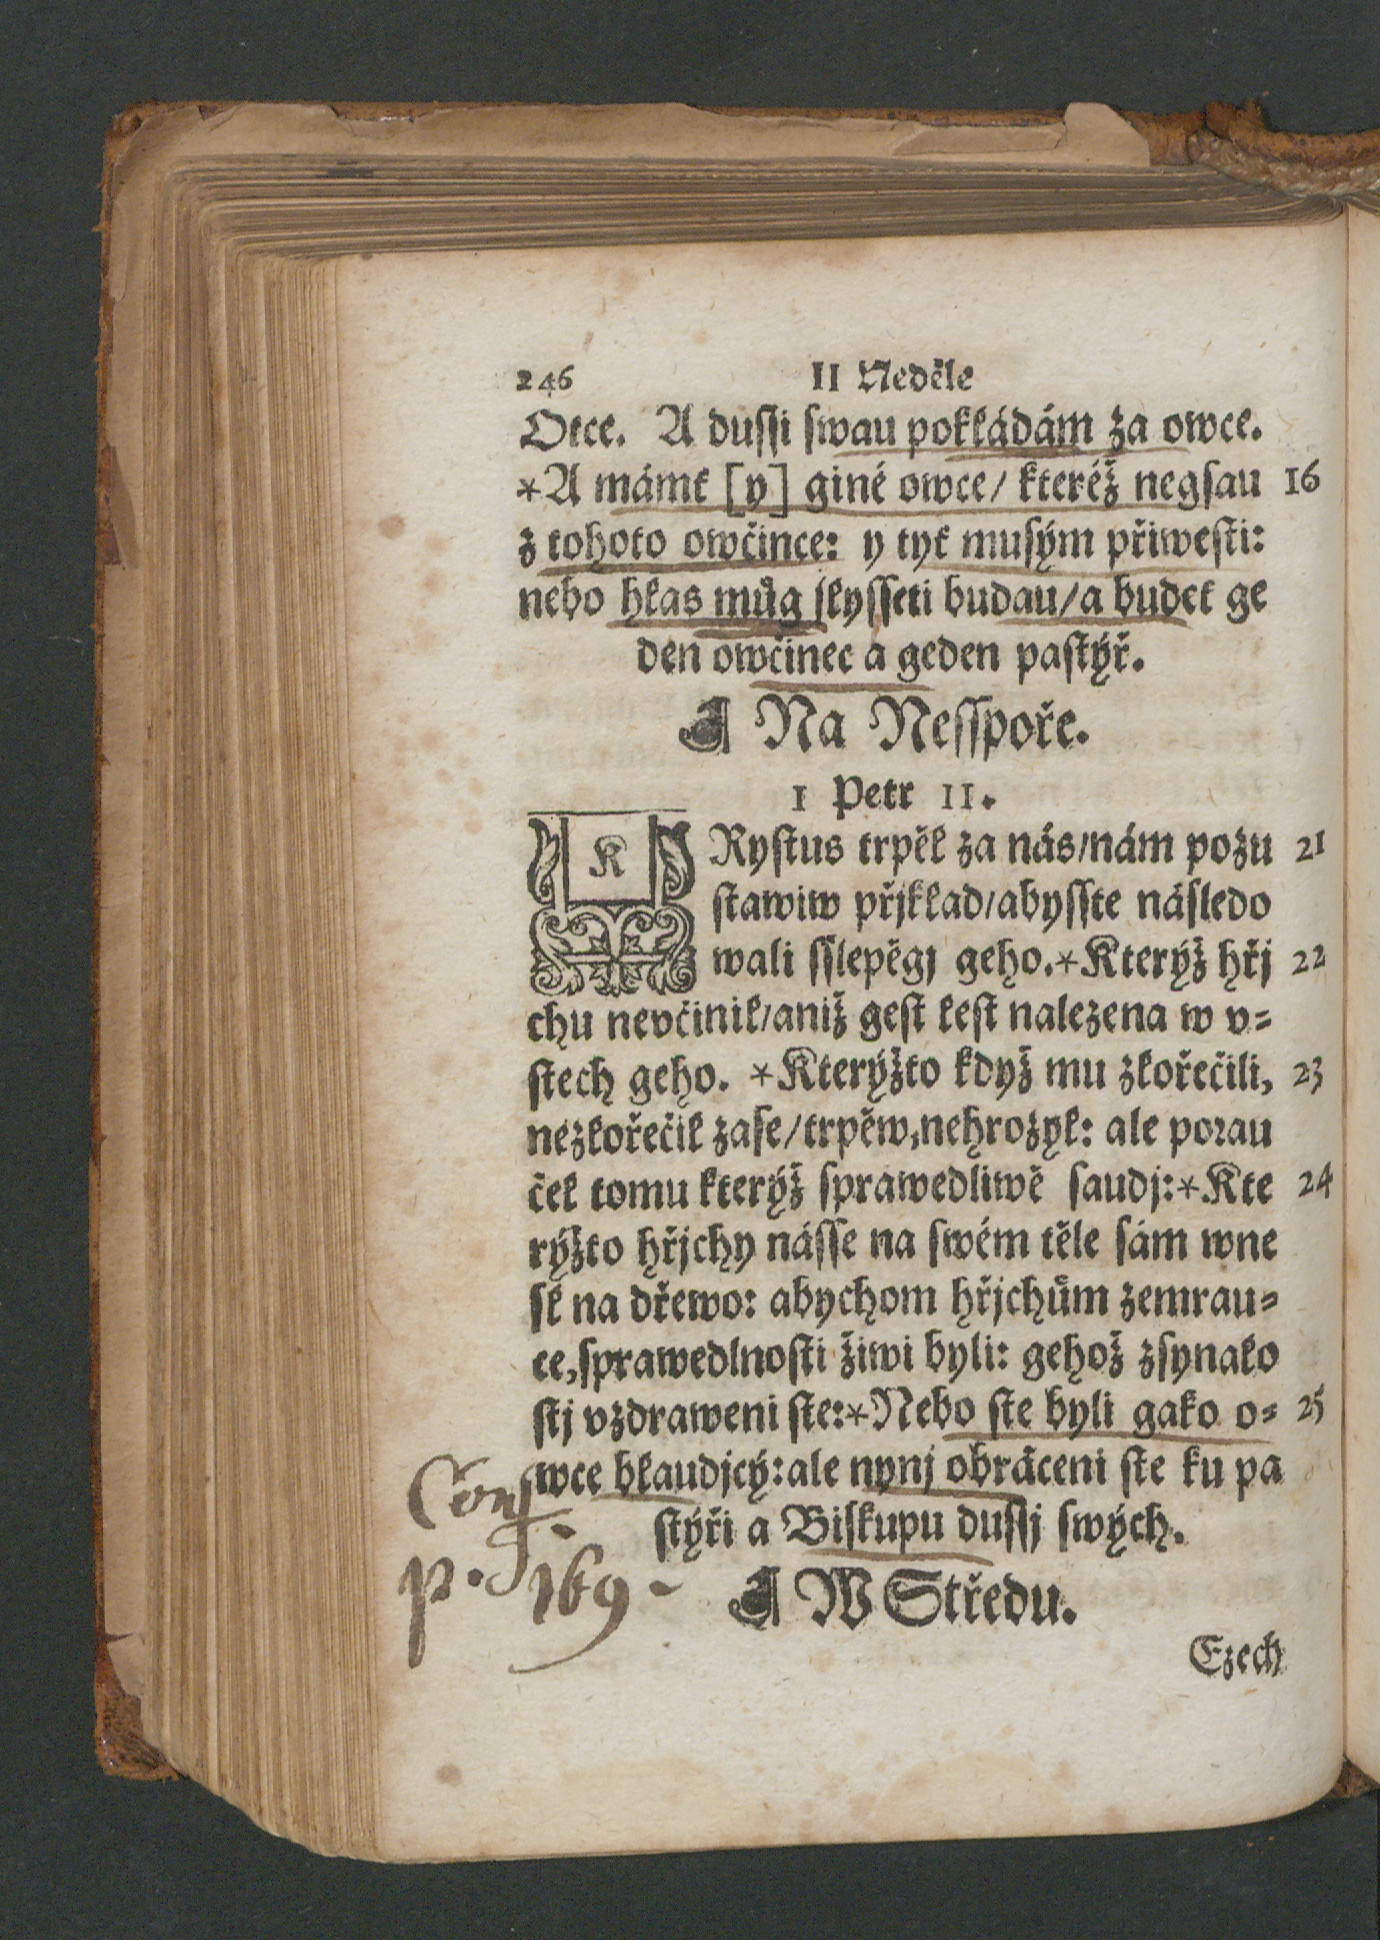 246 II Neděle
Otce. A dussi swau pokládám za owce.
*A mámt [y] giné owce/ kteréž negsau 16
z tohoto owčince: y tyt musým přiwesti:
nebo hlas můg slysseti budau/a budet ge
den owčinec a geden pastýř.
¶ Na Nesspoře.
1 Petr II.
KRystus trpěl za nás/nám pozu 21
stawiw přjklad/abysste následo
wali sslepěgj geho.*Kterýž hřj 22
chu nevčinil/aniž gest lest nalezena w v=
stech geho. *Kterýžto když mu zlořečili, 23
nezlořečil zase/trpěw,nehrozyl: ale porau
čel tomu kterýž sprawedliwě saudj:*Kte 24
rýžto hřjchy násse na swém těle sám wne
sl na dřewo: abychom hřjchům zemrau=
ce,sprawedlnosti žiwi byli: gehož zsynalo
stj vzdraweni ste:*Nebo ste byli gako o= 25
wce blaudjcý:ale nynj obráceni ste ku pa
stýři a Biskupu dussj swých.
Conf.
p. 169
¶ W Středu.
Ezech